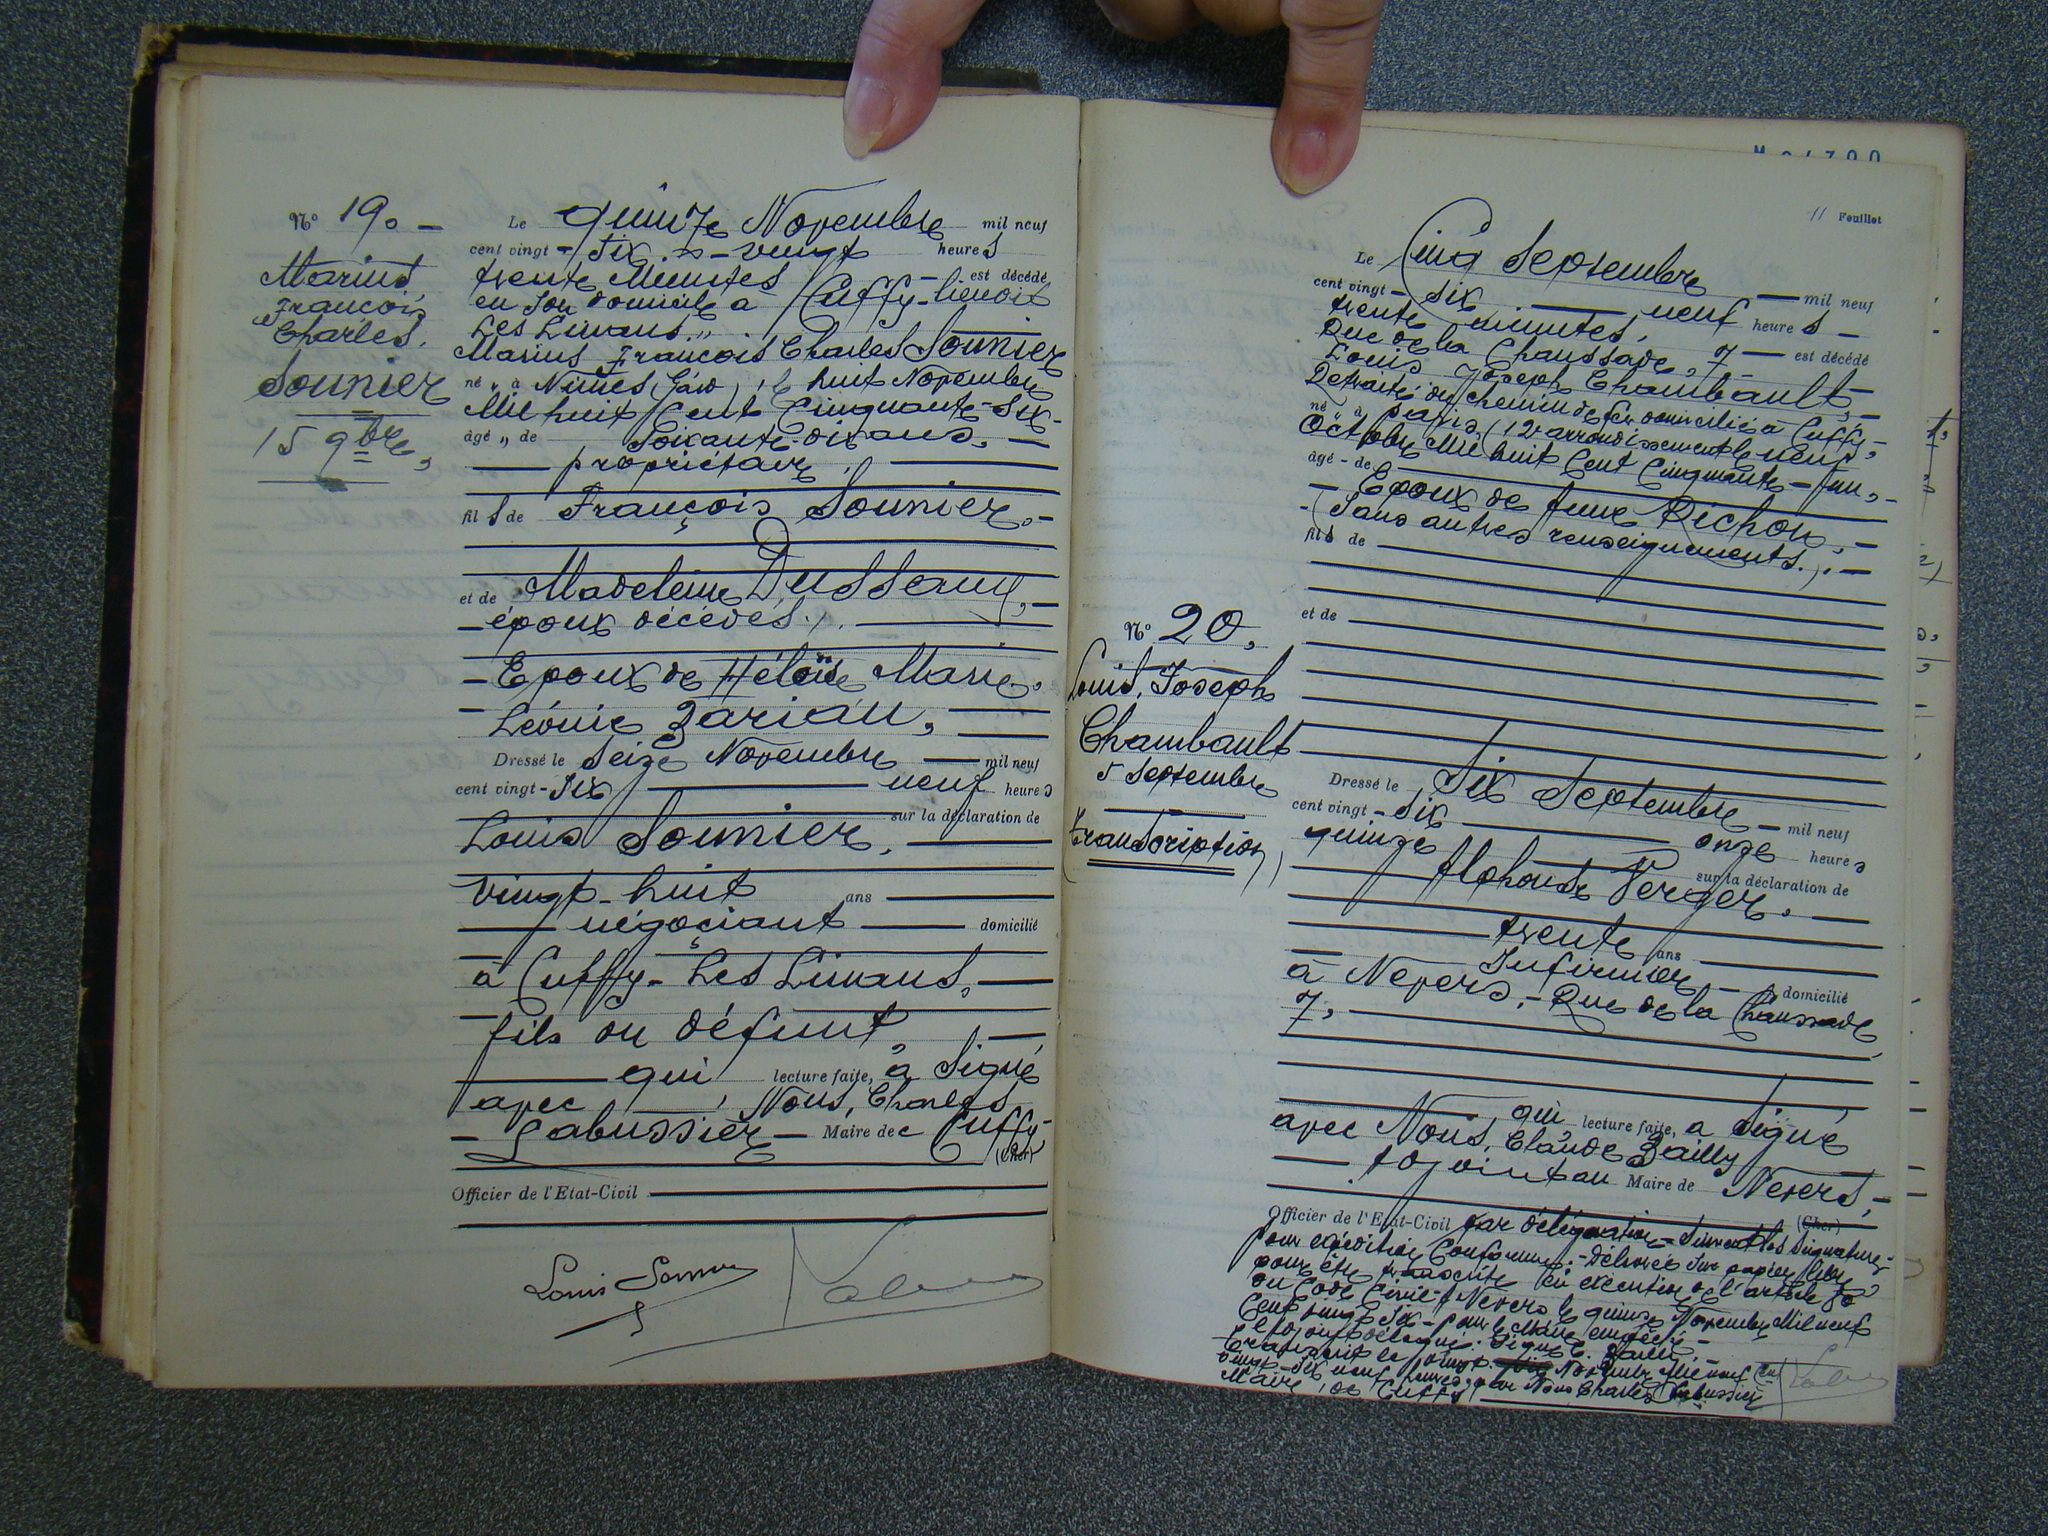 N° 19. -
Marius,
François
Charles.
Sounier
15 9bre,
Le quinze Novembre mil neuf
cent vingt - six à vingt heures
trente Minutes est décédé
en son domicile à Cuffy - lieudit
Les Limans „
Marius François Charles Sounier
né „ à Nimes (Gard), le huit Novembre
Mil huit Cent Cinquante-Six -
âgé „ de Soixante-dix ans, -
propriétaire,
fils de François Sounier, -
et de Madeleine Dusseaux, -
- époux décédés./.
- Epoux de Héloïse Marie,
- Léonie Bariau,
Dressé le Seize Novembre mil neuf
cent vingt - Six neuf heures
sur la déclaration de
Louis Sounier,
Vingt-huit ans
négociant domicilié
à Cuffy - Les Limans,
fils du défunt,
qui lecture faite, a signé
avec Nous, Charles
- Labussière - Maire de Cuffy -
(Cher)
Officier de l'Etat-Civil
Louis Sounier
11 Feuillet
Le Cinq Septembre mil neuf
cent vingt - six neuf heures -
trente minutes,
Rue de la Chaussade, 7 est décédé
Louis Joseph Chambault, -
Retraité du chemin de fer domicilié à Cuffy, -
né „ à Paris, (12e arrondissement le neuf
Octobre Mil huit Cent Cinquante - un, -
âgé - de
- Epoux de feue Richon, -
- (Sans autres renseignements./. -
fils de
et de
N° 20,
Louis, Joseph
Chambault
5 Septembre
(transcription)
Dressé le Six Septembre - mil neuf
cent vingt - six onze heures
quinze
sur la déclaration de
Alphonse Verger,
trente ans
Infirmier domicilié
à Nevers, - Rue de la Chaussade
7,
qui lecture faite, a signé
avec Nous, Claude Bailly
Adjoint au Maire de Nevers, -
(Cher)
Officier de l'Etat-Civil par délégation - Suivent les signatures -
Pour expédition Conforme - Délivrée sur papier libre
pour être transcrite en exécution de l'article 80
du Code Civil - Nevers le quinze Novembre Mil neuf
Cent vingt Six - pour le Maire empêché -
l'Adjoint délégué. Signé C. Bailly. -
Transcrit le vingt Novembre Mil neuf Cent
vingt-Six neuf heures, par Nous Charles Labussière
Maire, de Cuffy